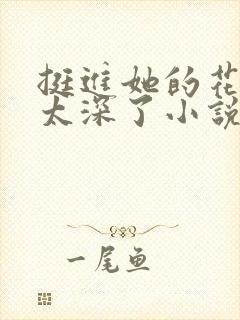 挺进她的花
太深了小说
一尾鱼